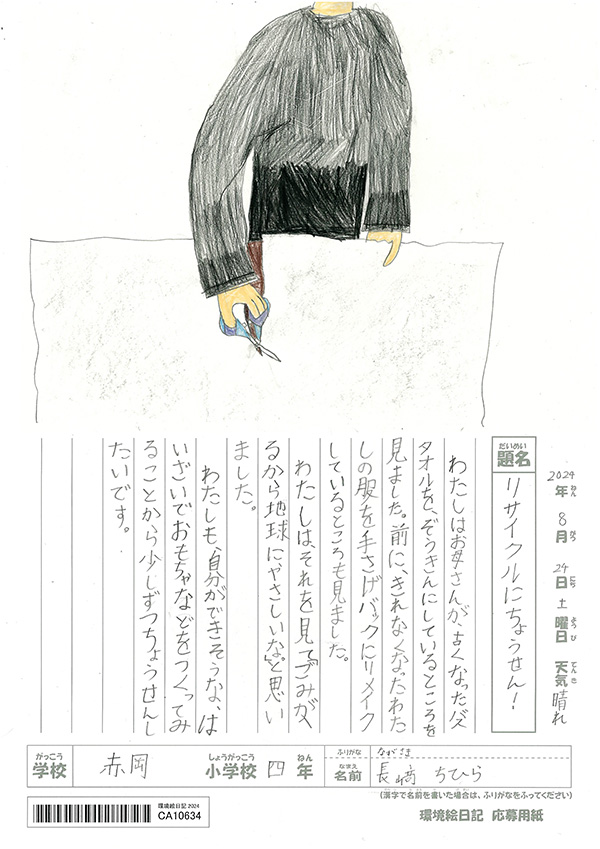 2024年 8月 24日 土曜日 天気 晴れ
ねん がつ にち ようび てんき
だいめい
題名 リサイクルにちょうせん!
わたしはお母さんが、古くなったバス
タオルを、ぞうきんにしているところを
見ました。前に、きれなくなったわた
しの服を手さげバックにリメイク
しているところも見ました。
わたしは、それを見て「ごみが、
るから地球に、やさしいな。」と思い
ました。
わたしも、自分ができそうな、は
いざいでおもちゃなどをつくってみ
ることから少しずつちょうせんし
たいです。
がっこう しょうがっこう ねん
学校 赤岡 小学校 四年
ふりがな ながさき
なまえ
名前 長﨑 ちびら
(漢字で名前を書いた場合は、ふりがなをふってください)
環境絵日記 2024
CA10634
環境絵日記 応募用紙